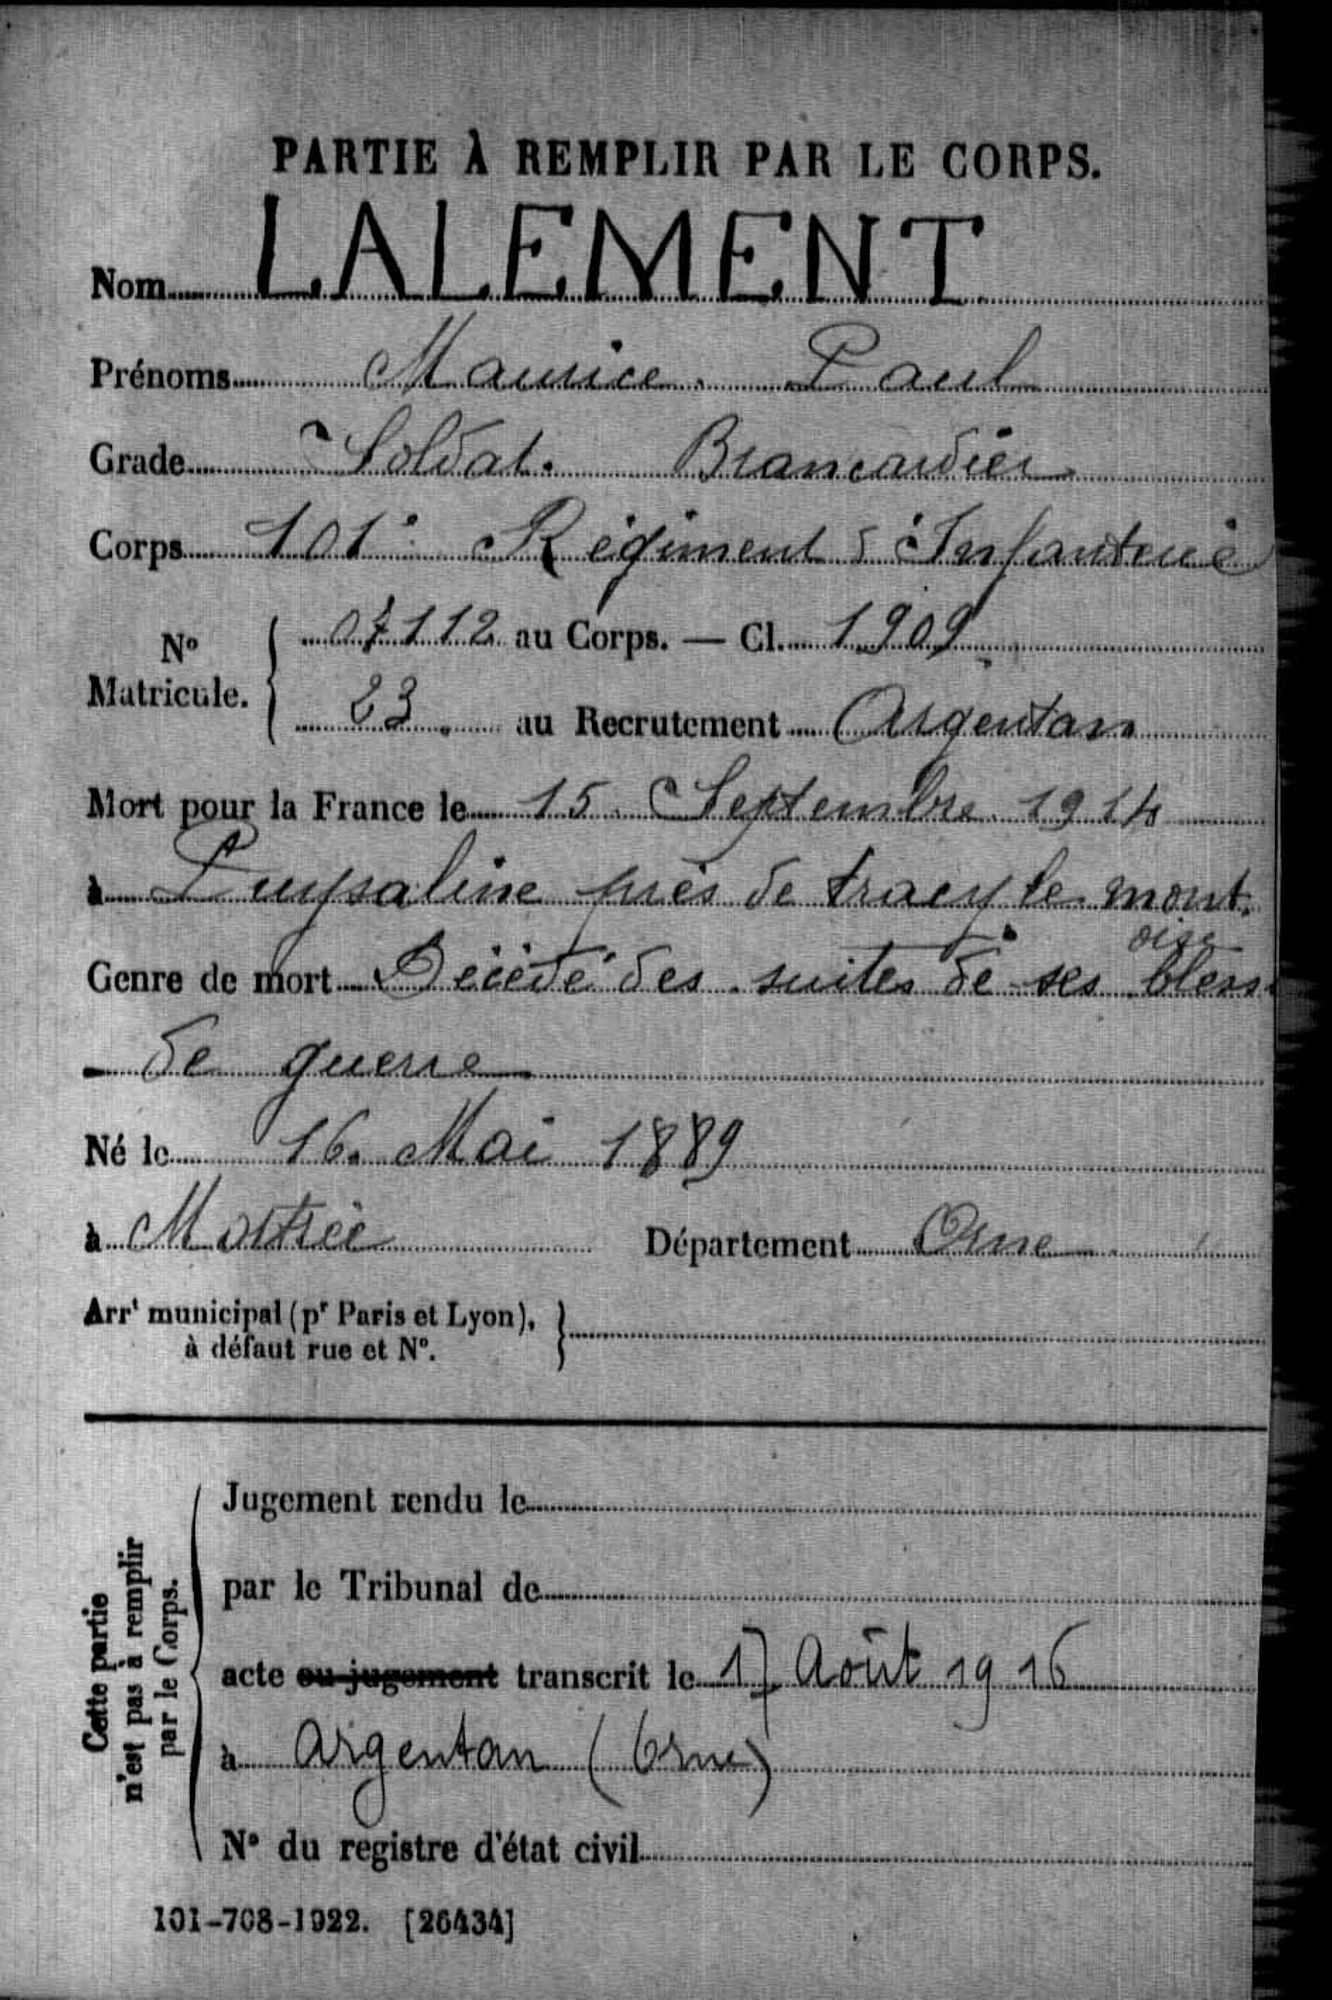 PARTIE À REMPLIR PAR LE CORPS.
Nom LALEMENT
Prénoms Maurice Paul
Grade Soldat. Brancardier
Corps 101e Régiment d'Infanterie
N° Matricule. { 07112 au Corps. — Cl. 1909
23. au Recrutement Argentan
Mort pour la France le 15 Septembre 1914
à Puysaline près de tracy le mont.
oise
Genre de mort Décédé des suites de ses bless.
de guerre
Né le 16 Mai 1889
à Mortrée Département Orne
Arrt municipal (pr Paris et Lyon),
à défaut rue et N°. }
Cette partie
n'est pas à remplir
par le Corps.
Jugement rendu le
par le Tribunal de
acte ou jugement transcrit le 17 Août 1916
à Argentan (Orne)
N° du registre d'état civil
101-708-1922. [26434]